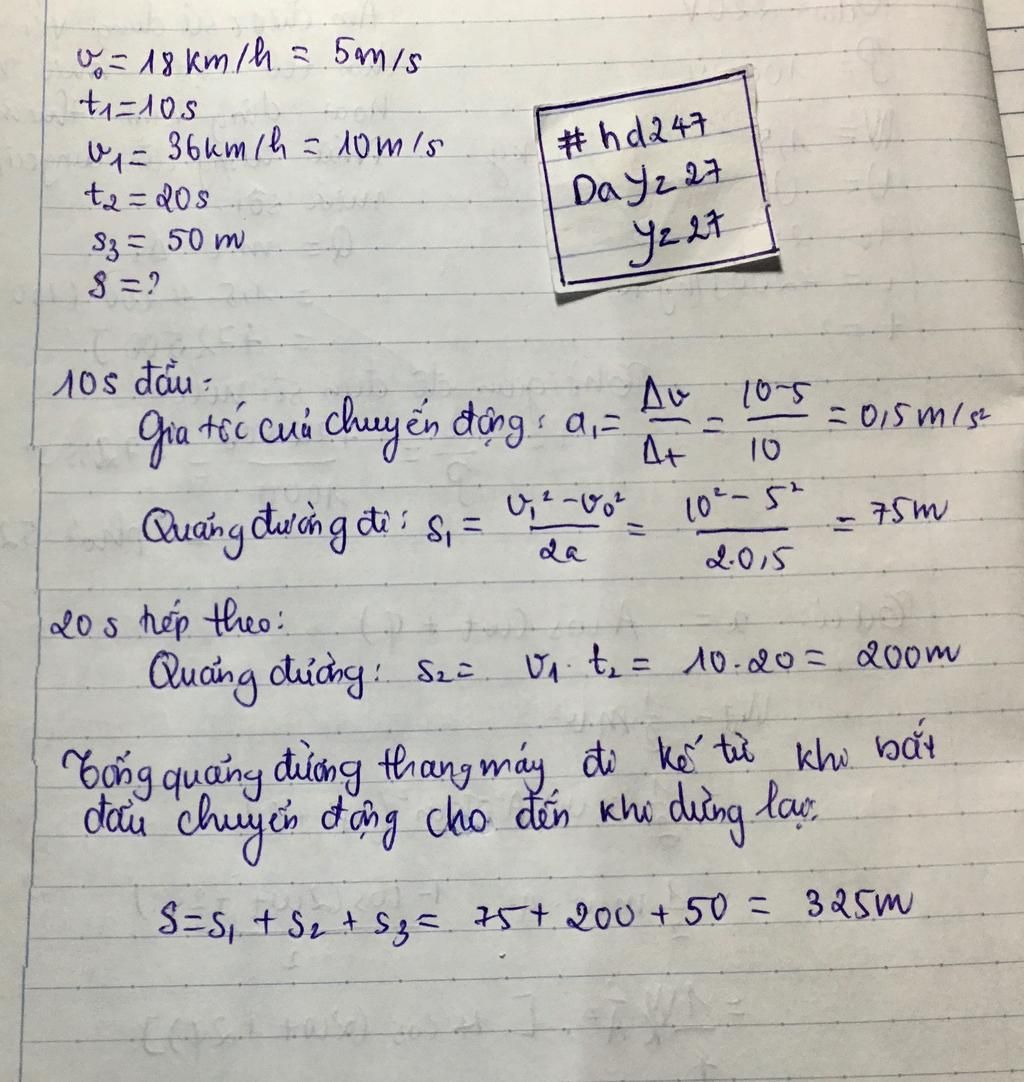 v₀ = 18 km/h = 5m/s
t₁=10s
v₁ = 36km/h = 10m/s
t₂ = 20s
s₃ = 50 m
S = ?
#hd247
Dayz27
yz27
10s đầu:
Gia tốc của chuyển động: a₁ = Δv/Δt = (10-5)/10 = 0,5 m/s²
Quãng đường đi: s₁ = (v₁² - v₀²)/2a = (10² - 5²)/2.0,5 = 75m
20s tiếp theo:
Quãng đường: s₂ = v₁. t₂ = 10.20 = 200m
Tổng quãng đường thang máy đi kể từ khi bắt
đầu chuyển động cho đến khi dừng lại:
S = s₁ + s₂ + s₃ = 75 + 200 + 50 = 325m